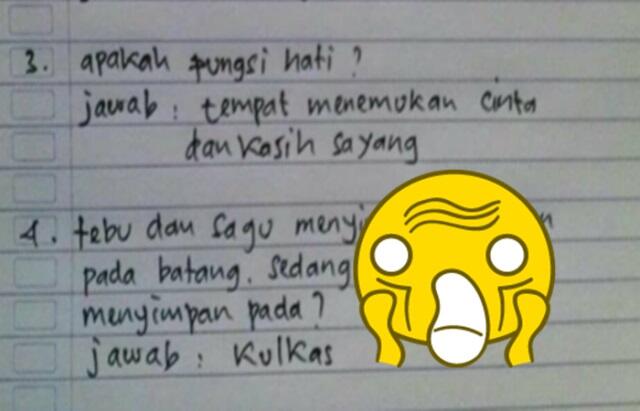 3. apakah fungsi hati ?
jawab : tempat menemukan cinta
dan kasih sayang
4. tebu dan sagu
pada batang. sedang
menyimpan pada ?
jawab : kulkas